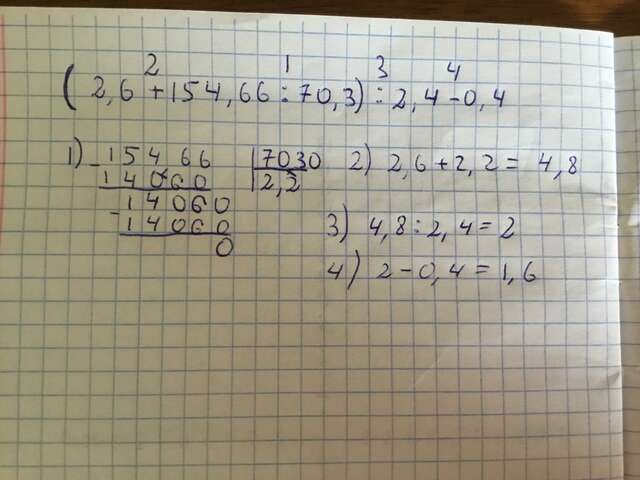 2 1 3 4
(2,6 + 154,66 : 70,3) : 2,4 - 0,4
1) - 15466 | 7030
14060 | 2,2
- 14060
14060
0
2) 2,6 + 2,2 = 4,8
3) 4,8 : 2,4 = 2
4) 2 - 0,4 = 1,6